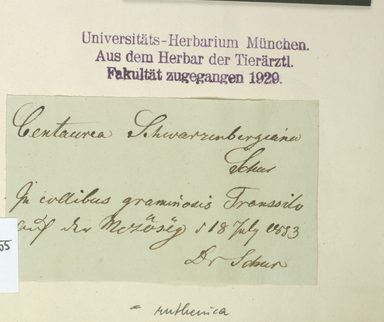 Universitäts-Herbarium München.
Aus dem Herbar der Tierärztl.
Fakultät zugegangen 1929.
Centaurea Schwarzenbergiana
Schur
In collibus graminosis Transsilv
auf der Mezöség d 18 July 1853
Dr Schur
55
= ruthenica